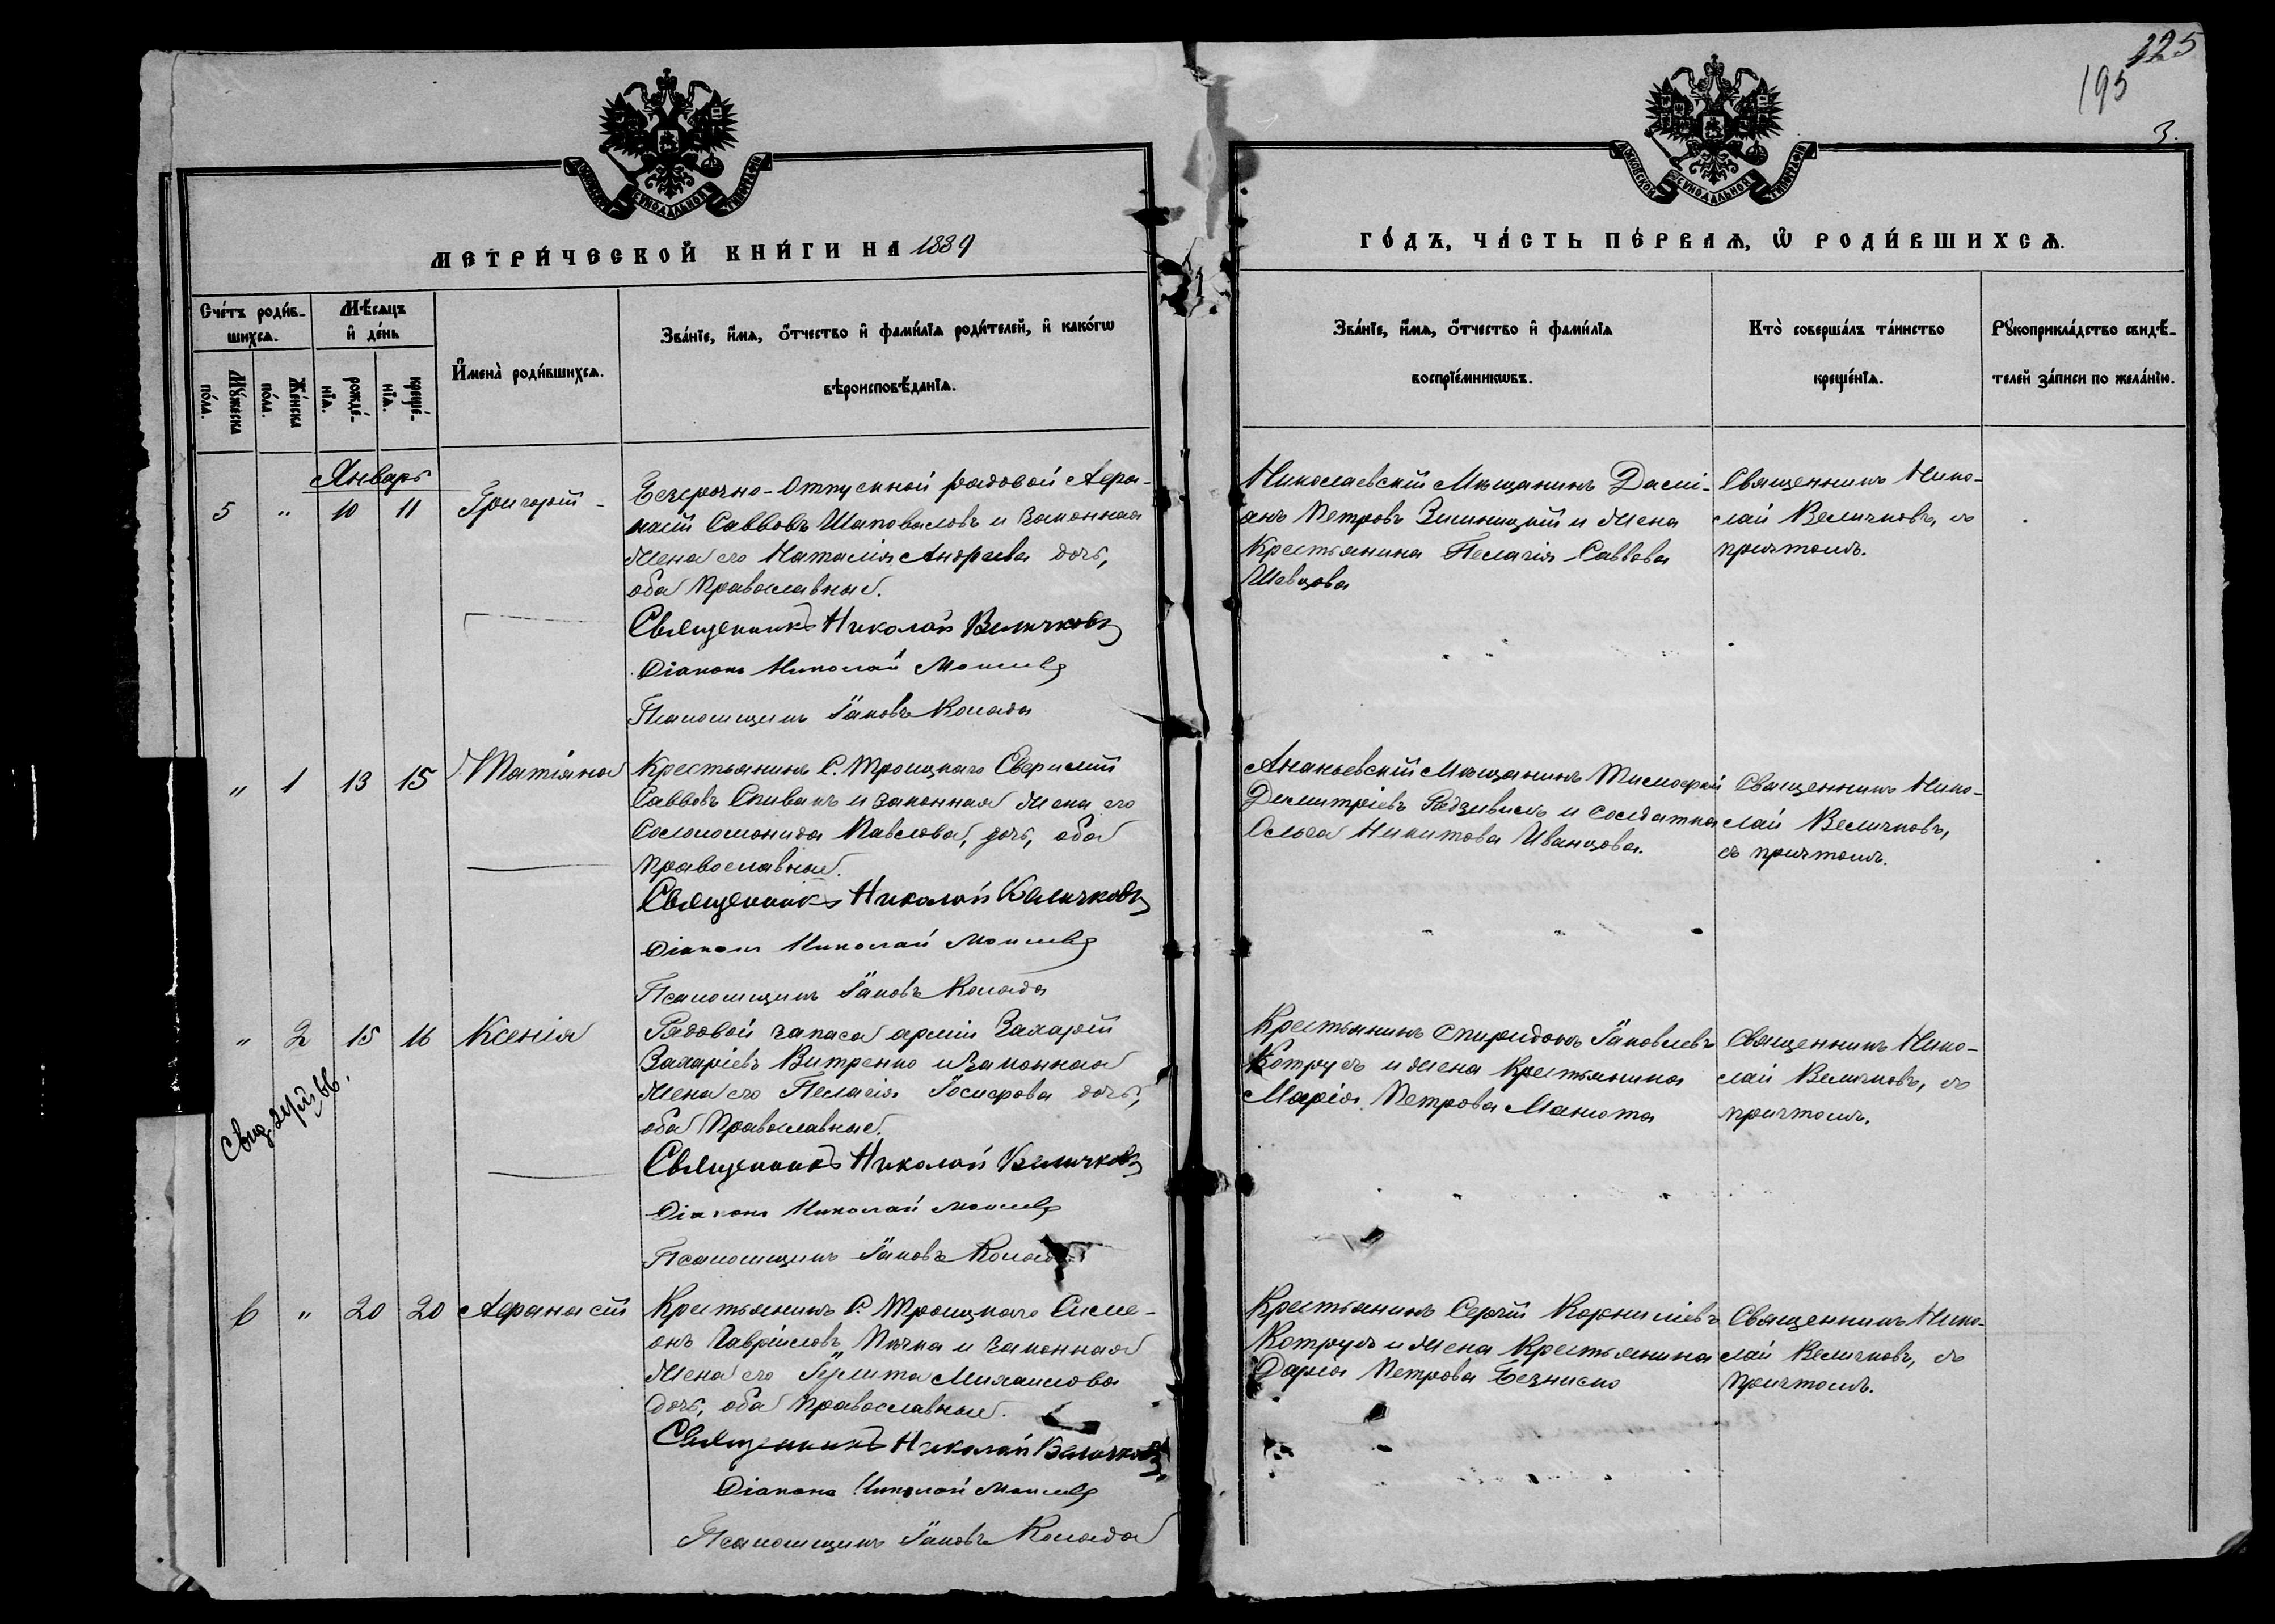 225
195
3.
МОСКОВСКОЙ СѴНОДАЛЬНОЙ ТИПОГРАФІИ
МОСКОВСКОЙ СѴНОДАЛЬНОЙ ТИПОГРАФІИ
МЕТРИ́ЧЕСКОЙ КНИ́ГИ НА 1889
ГО́ДЪ, ЧА́СТЬ ПЕ́РВАѦ, Ѽ РОДИ́ВШИХСѦ.
Сче́тъ роди́в-
шихсѧ.
Мѣ́сѧцъ
и҆ де́нь
Мꙋ́жеска
по́ла.
Же́нска
по́ла.
рожде́-
нїѧ.
креще́-
нїѧ.
И҆мена̀ роди́вшихсѧ.
Зва́нїе, и҆́мѧ, ѻ҆́тчество и҆ фами́лїѧ роди́телей, и҆ како́гѡ
вѣроисповѣ́данїѧ.
Зва́нїе, и҆́мѧ, ѻ҆́тчество и҆ фами́лїѧ
воспрїе́мникѡвъ.
Кто̀ соверша́лъ та́инство
креще́нїѧ.
Рꙋкоприкла́дство свидѣ́-
телей за́писи по жела́нїю.
Январь
5 " 10 11 Григорій -
Безсрочно-Отпускной рядовой Афа-
насій Саввовъ Шаповаловъ и законная
жена его Наталія Андреева дочь,
оба Православные.
Священникъ Николай Величковъ
Діаконъ Николай
Псаломщикъ Іаковъ Коляда
Николаевскій Мѣщанинъ Дамі-
анъ Петровъ и жена
Крестьянина Пелагія Саввова
Шевцова
Священникъ Нико-
лай Величковъ, съ
причтомъ.
" 1 13 15 Татіяна
Крестьянинъ С. Троицкаго Северилій
Саввовъ Спивакъ и законная жена его
Соломонида Павлова, дочь, оба
православные.
Священникъ Николай Величковъ
Діаконъ Николай
Псаломщикъ Іаковъ Коляда
Ананьевскій Мѣщанинъ Тимофей
Димитріевъ Радзивилъ и солдатка
Ольга Никитова Иванцова.
Священникъ Нико-
лай Величковъ,
съ причтомъ.
" 2 15 16 Ксенія
Рядовой запаса арміи Захарій
Захаріевъ Витренко и законная
жена его Пелагія Іосифова дочь,
оба Православные.
Священникъ Николай Величковъ
Діаконъ Николай
Псаломщикъ Іаковъ Коляда
Крестьянинъ Спиридонъ Іаковлевъ
Котрусъ и жена Крестьянина
Марія Петрова Манюта
Священникъ Нико-
лай Величковъ, съ
причтомъ.
6 " 20 20 Афанасій
Крестьянинъ С. Троицкаго Симе-
онъ Гавріиловъ Пичка и законная
жена его Іулита Михаилова
дочь, оба православные.
Священникъ Николай Величковъ
Діаконъ Николай
Псаломщикъ Іаковъ Коляда
Крестьянинъ Сергій Корниліевъ
Котрусъ и жена Крестьянина
Дарія Петрова Безниско
Священникъ Нико-
лай Величковъ, съ
причтомъ.